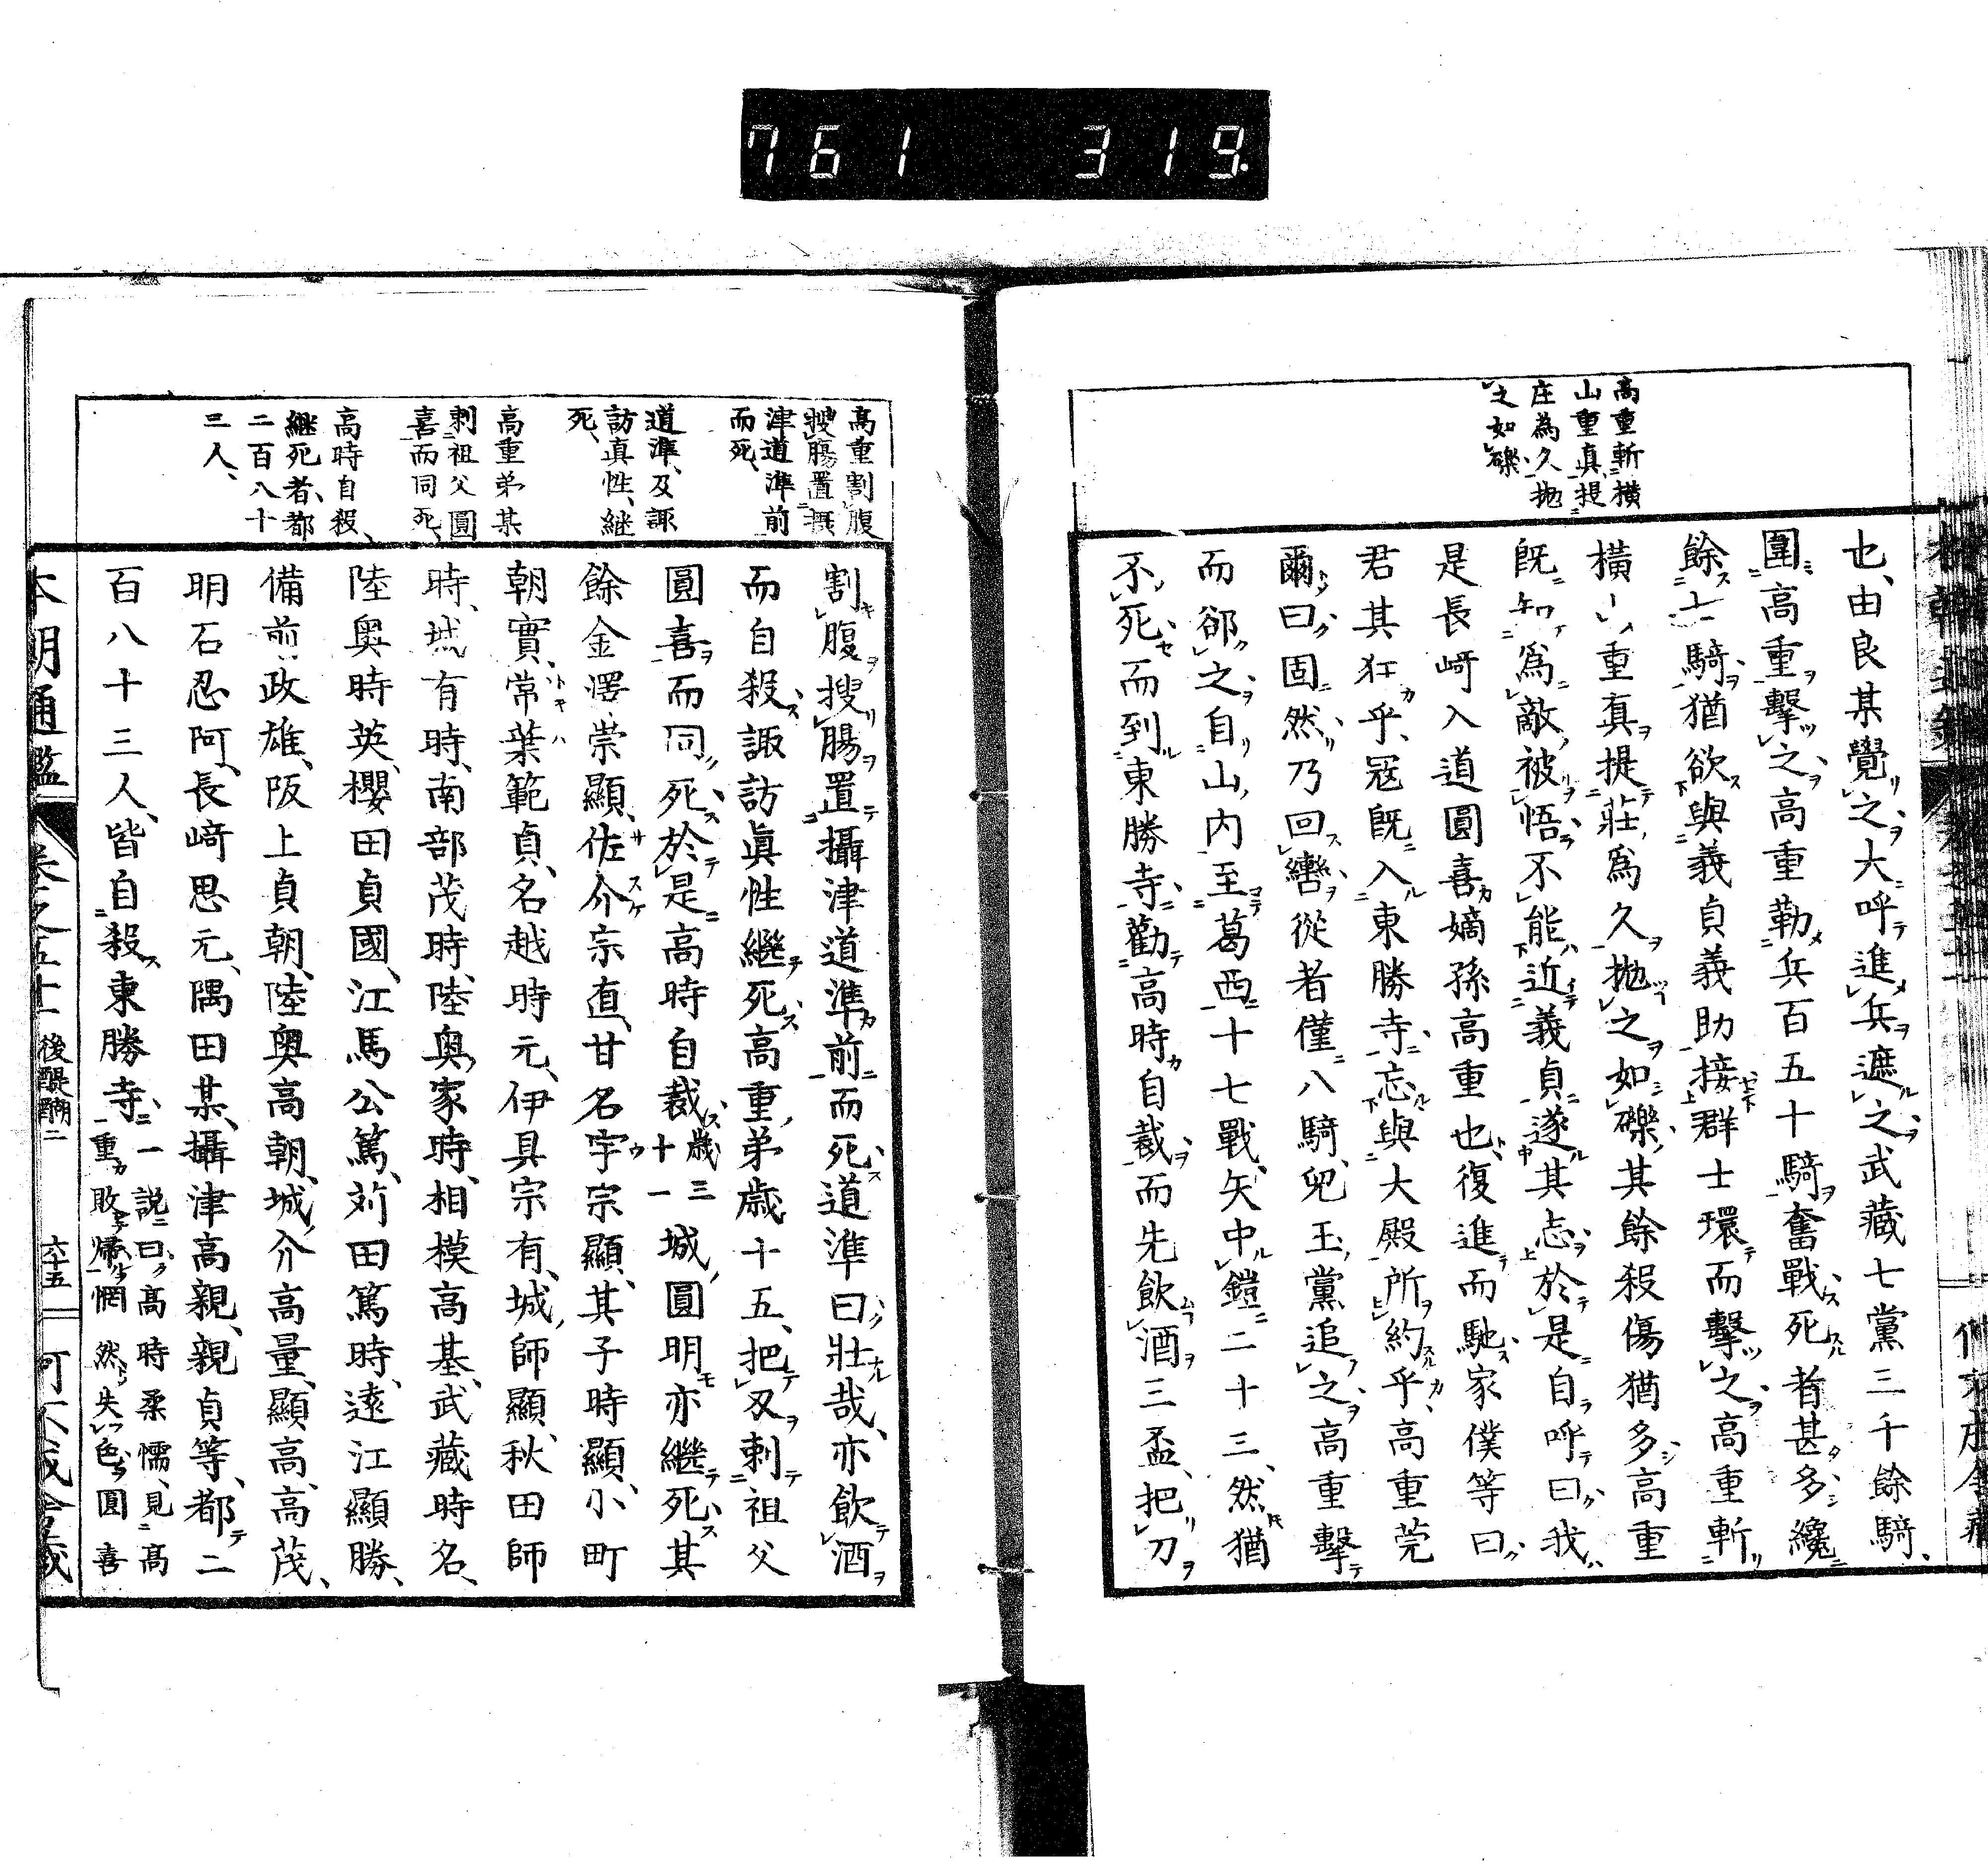 761 319
高重斬橫
山重真提
庄為久拋
之如礫
也、由良某覺之大呼進兵遮之武藏七黨三千餘騎、
圍高重擊之高重勒兵百五十騎奮戰死者甚多纔
餘士騎猶欲與義貞義助接群士環而擊之高重斬
橫山重真提莊爲久拋之如礫其餘殺傷猶多高重
既知爲敵被悟不能近義貞遂其志於是自呼曰我
是長﨑入道圓喜嫡孫高重也復進而馳家僕等曰
君其狂乎、寇既入東勝寺忘與大殿所約乎、高重莞
爾曰固然乃回轡從者僅八騎、兒玉黨追之高重擊
而郤之自山內至葛西十七戰、矢中鎧二十三、然猶
不死而到東勝寺勸高時自裁而先飲酒三盃、把刀
高重割腹
搜腸置攝
津道準前
而死、
道準、及諏
訪真性、継
死、
高重弟某
刺祖父圓
喜而同死、
高時自殺、
継死者、都
二百八十
三人、
割腹搜腸置攝津道準前而死道準曰壯哉、亦飲酒
而自殺諏訪眞性繼死高重弟歳十五、把刃刺祖父
圓喜而同死於是高時自裁歳三十一城圓明亦繼死其
餘金澤崇顯、佐介宗直、甘名宇宗顯、其子時顯、小町
朝實、常葉範貞、名越時元、伊具宗有、城師顯、秋田師
時、城有時、南部茂時、陸奥家時、相模高基、武藏時名、
陸奥時英、櫻田貞國、江馬公篤、苅田篤時、遠江顯勝、
備前政雄、阪上貞朝、陸奥高朝、城介高量、顯高、高茂、
明石忍阿、長﨑思元、隅田某、攝津高親、親貞等、都二
百八十三人、皆自殺東勝寺、一説曰高時柔懦、見高
重敗帰惘然失色圓喜
本朝通鑑 卷之五十一 後醍醐二 六十五